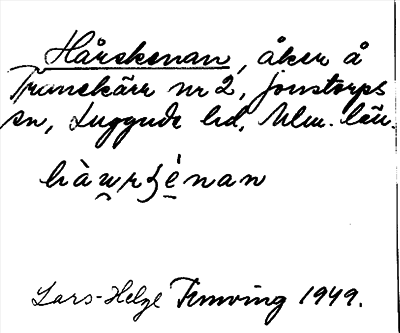 Hårskenan, åker å
Tranekärr nr 2, Jonstorps
sn, Luggude hd, Mlm. län.
hàwrʒènan
Lars-Helge Temving 1949.